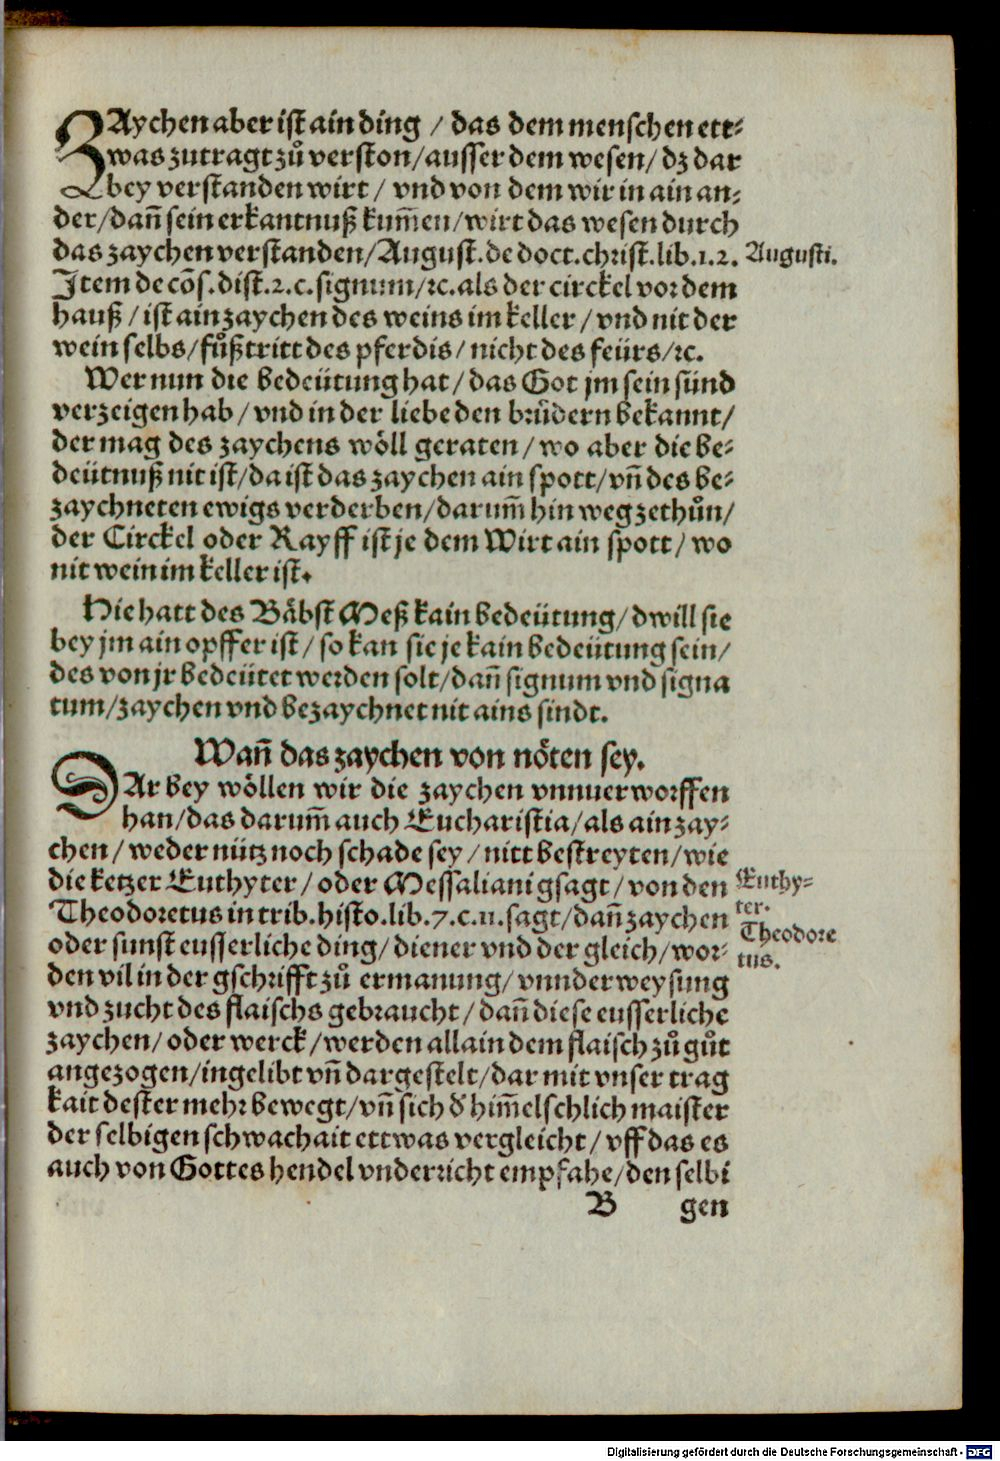 ZAychen aber ist ain ding / das dem menschen ett⸗
was zutragt zů verston/ausser dem wesen/dz dar
bey verstanden wirt / vnd von dem wir in ain an⸗
der/dañ sein erkantnuß kum̃en/wirt das wesen durch
das zaychen verstanden/August.de doct.christ.lib.1.2. Augusti.
Item de cõs.dist.2.c.signum/ꝛc.als der circkel vor dem
hauß / ist ain zaychen des weins im keller / vnd nit der
wein selbs/fůßtritt des pferdis / nicht des feürs/ꝛc.
Wer nun die bedeütung hat / das Got jm sein sünd
verzeigen hab / vnd in der liebe den brüdern bekannt/
der mag des zaychens wöll geraten / wo aber die be⸗
deütnuß nit ist/da ist das zaychen ain spott/vñ des be⸗
zaychneten ewigs verderben/darum̃ hin weg zethůn/
der Circkel oder Rayff ist je dem Wirt ain spott / wo
nit wein im keller ist.
Hie hatt des Bäbst Meß kain bedeütung/dwill sie
bey jm ain opffer ist / so kan sie je kain bedeütung sein/
des von jr bedeütet werden solt/dañ signum vnd signa
tum/zaychen vnd bezaychnet nit ains sindt.
Wañ das zaychen von nöten sey.
DAr bey wöllen wir die zaychen vnnuerworffen
han/das darum̃ auch Eucharistia/als ain zay⸗
chen / weder nütz noch schade sey / nitt bestreyten/wie
die ketzer Euthyter / oder Messaliani gsagt / von den
Euthy⸗
ter.
Theodoretus in trib.histo.lib.7.c.11.sagt/dañ zaychen
Theodore
tus.
oder sunst eusserliche ding/diener vnd der gleich/wor⸗
den vil in der gschrifft zů ermanung/vnnderweysung
vnd zucht des flaischs gebraucht / dañ diese eusserliche
zaychen/oder werck/werden allain dem flaisch zů gůt
angezogen/ingelibt vñ dargestelt/dar mit vnser trag
kait dester mehr bewegt/vñ sich d' him̃elschlich maister
der selbigen schwachait ettwas vergleicht / vff das es
auch von Gottes hendel vnderricht empfahe/den selbi
B gen
Digitalisierung gefördert durch die Deutsche Forschungsgemeinschaft - DFG